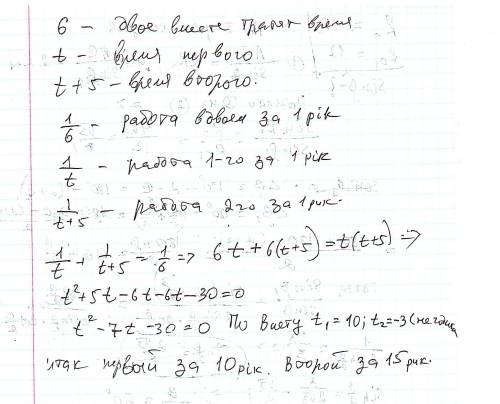 6 - двое вместе тратят время
t - время первого
t+5 - время второго.
1/6 - работа вдвоем за 1 рік
1/t - работа 1-го за 1 рік
1/(t+5) - работа 2го за 1 рик.
1/t + 1/(t+5) = 1/6 => 6t + 6(t+5) = t(t+5) =>
t²+5t-6t-6t-30=0
t²-7t-30=0 По Виету t₁=10; t₂=-3 (не годит
итак первый за 10 рік. Второй за 15 рик.